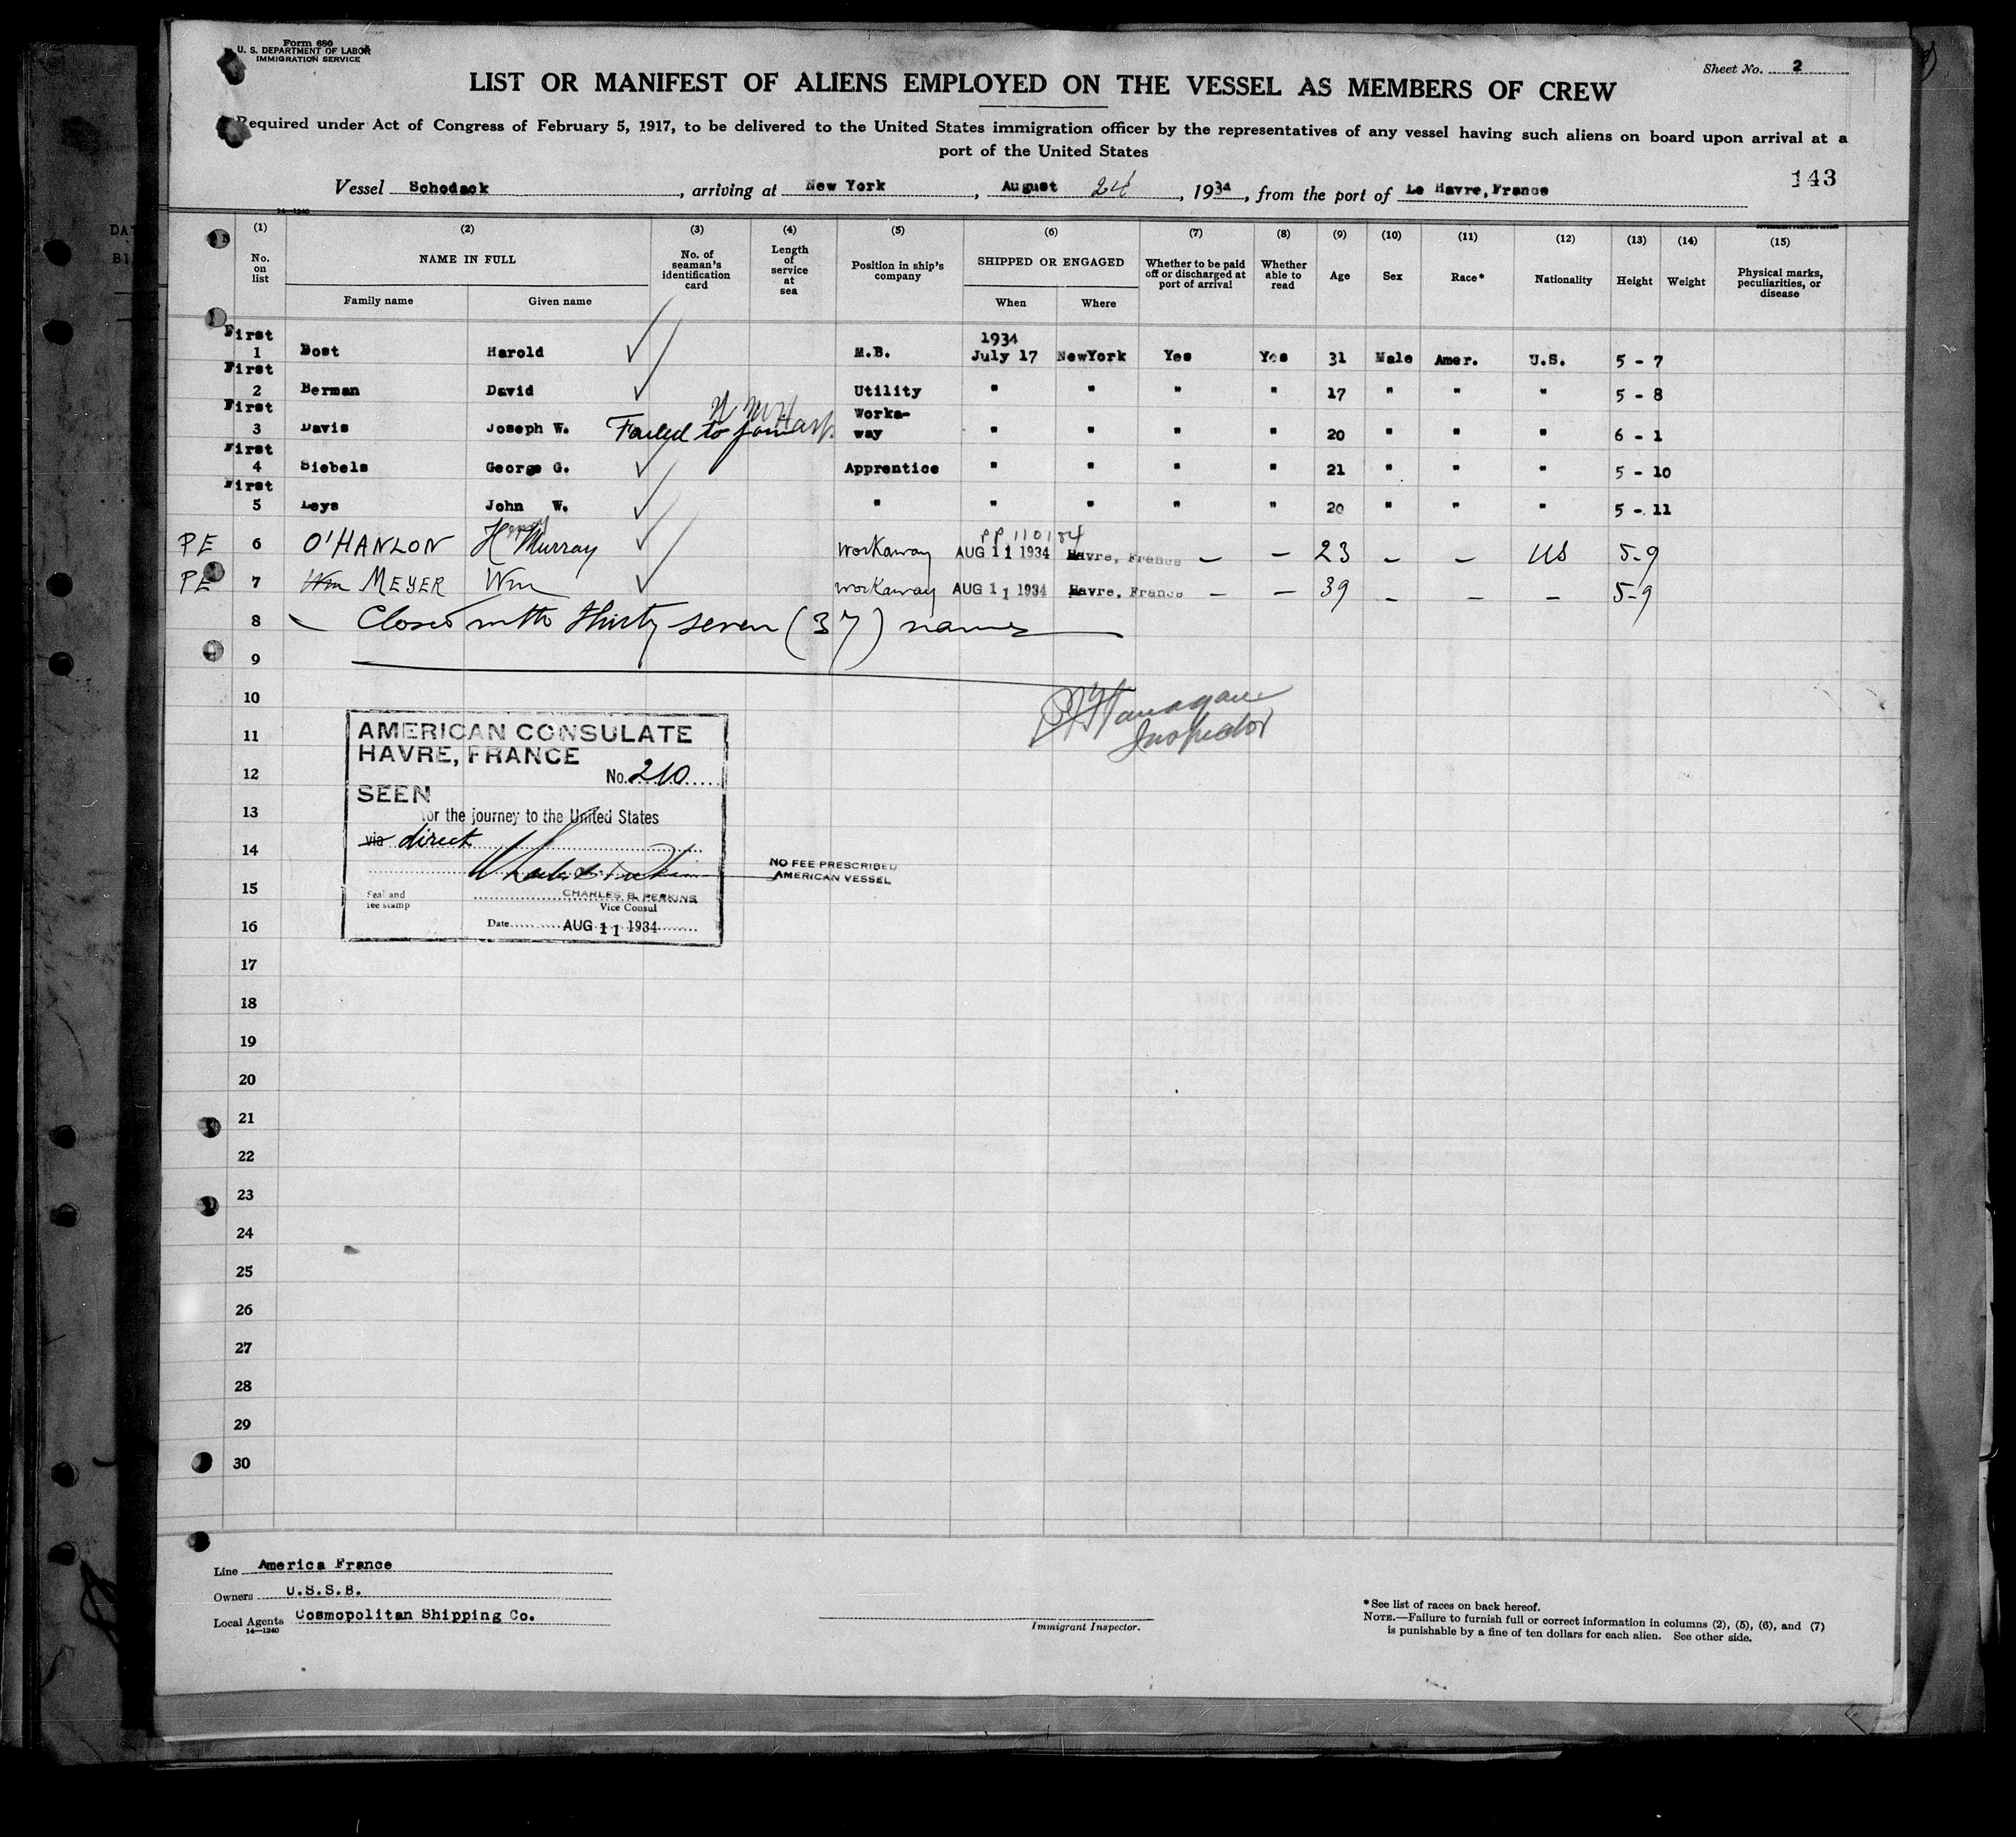 Form 680
U. S. DEPARTMENT OF LABOR
IMMIGRATION SERVICE
Sheet No. 2
LIST OR MANIFEST OF ALIENS EMPLOYED ON THE VESSEL AS MEMBERS OF CREW
Required under Act of Congress of February 5, 1917, to be delivered to the United States immigration officer by the representatives of any vessel having such aliens on board upon arrival at a
port of the United States
143
Vessel Schodack, arriving at New York, August 24, 1934, from the port of Le Havre, France
14—1240
(1) (2) (3) (4) (5) (6) (7) (8) (9) (10) (11) (12) (13) (14) (15)
No. on list
NAME IN FULL
Family name Given name
No. of seaman's identification card
Length of service at sea
Position in ship's company
SHIPPED OR ENGAGED
When Where
Whether to be paid off or discharged at port of arrival
Whether able to read
Age Sex Race* Nationality Height Weight
Physical marks, peculiarities, or disease
First 1934
1 Dost Harold ✓ M.B. July 17 NewYork Yes Yes 31 Male Amer. U.S. 5 - 7
First
2 Berman David ✓ Utility " " " " 17 " " " 5 - 8
First Worka-
3 Davis Joseph W. Failed to join way " " " " 20 " " " 6 - 1
First
4 Siebels George G. ✓ Apprentice " " " " 21 " " " 5 - 10
First
5 Leys John W. ✓ " " " " " 20 " " " 5 - 11
Henry PP 110184
PE 6 O'HANLON H Murray ✓ workaway AUG 11 1934 Havre, France — — 23 — — US 5-9
PE 7 Wm MEYER Wm ✓ workaway AUG 11 1934 Havre, France — — 39 — — — 5-9
8 Closed with thirty seven (37) names
9
10
Inspector
11
12
13
14
15
16
17
18
19
20
21
22
23
24
25
26
27
28
29
30
AMERICAN CONSULATE
HAVRE, FRANCE
No. 210
SEEN
for the journey to the United States
via direct
NO FEE PRESCRIBED
AMERICAN VESSEL
Seal and
fee stamp
CHARLES B. PERKINS
Vice Consul
Date AUG 11 1934
Line America France
Owners U.S.S.B.
Local Agents Cosmopolitan Shipping Co.
14—1240
Immigrant Inspector.
*See list of races on back hereof.
NOTE.—Failure to furnish full or correct information in columns (2), (5), (6), and (7)
is punishable by a fine of ten dollars for each alien. See other side.